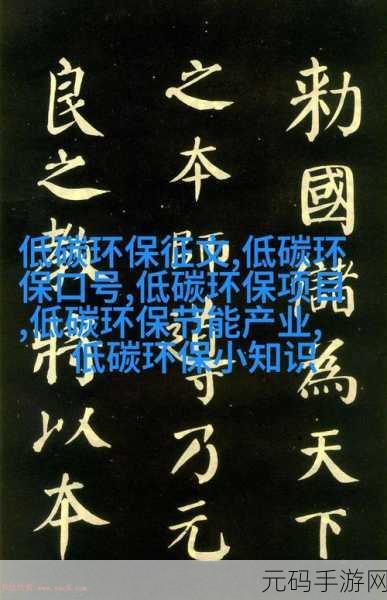 勅國儲為天下
之本師導乃元
良之教將以本
低碳环保征文,低碳环
保口号,低碳环保项目
,低碳环保节能产业,
低碳环保小知识
元码手游网